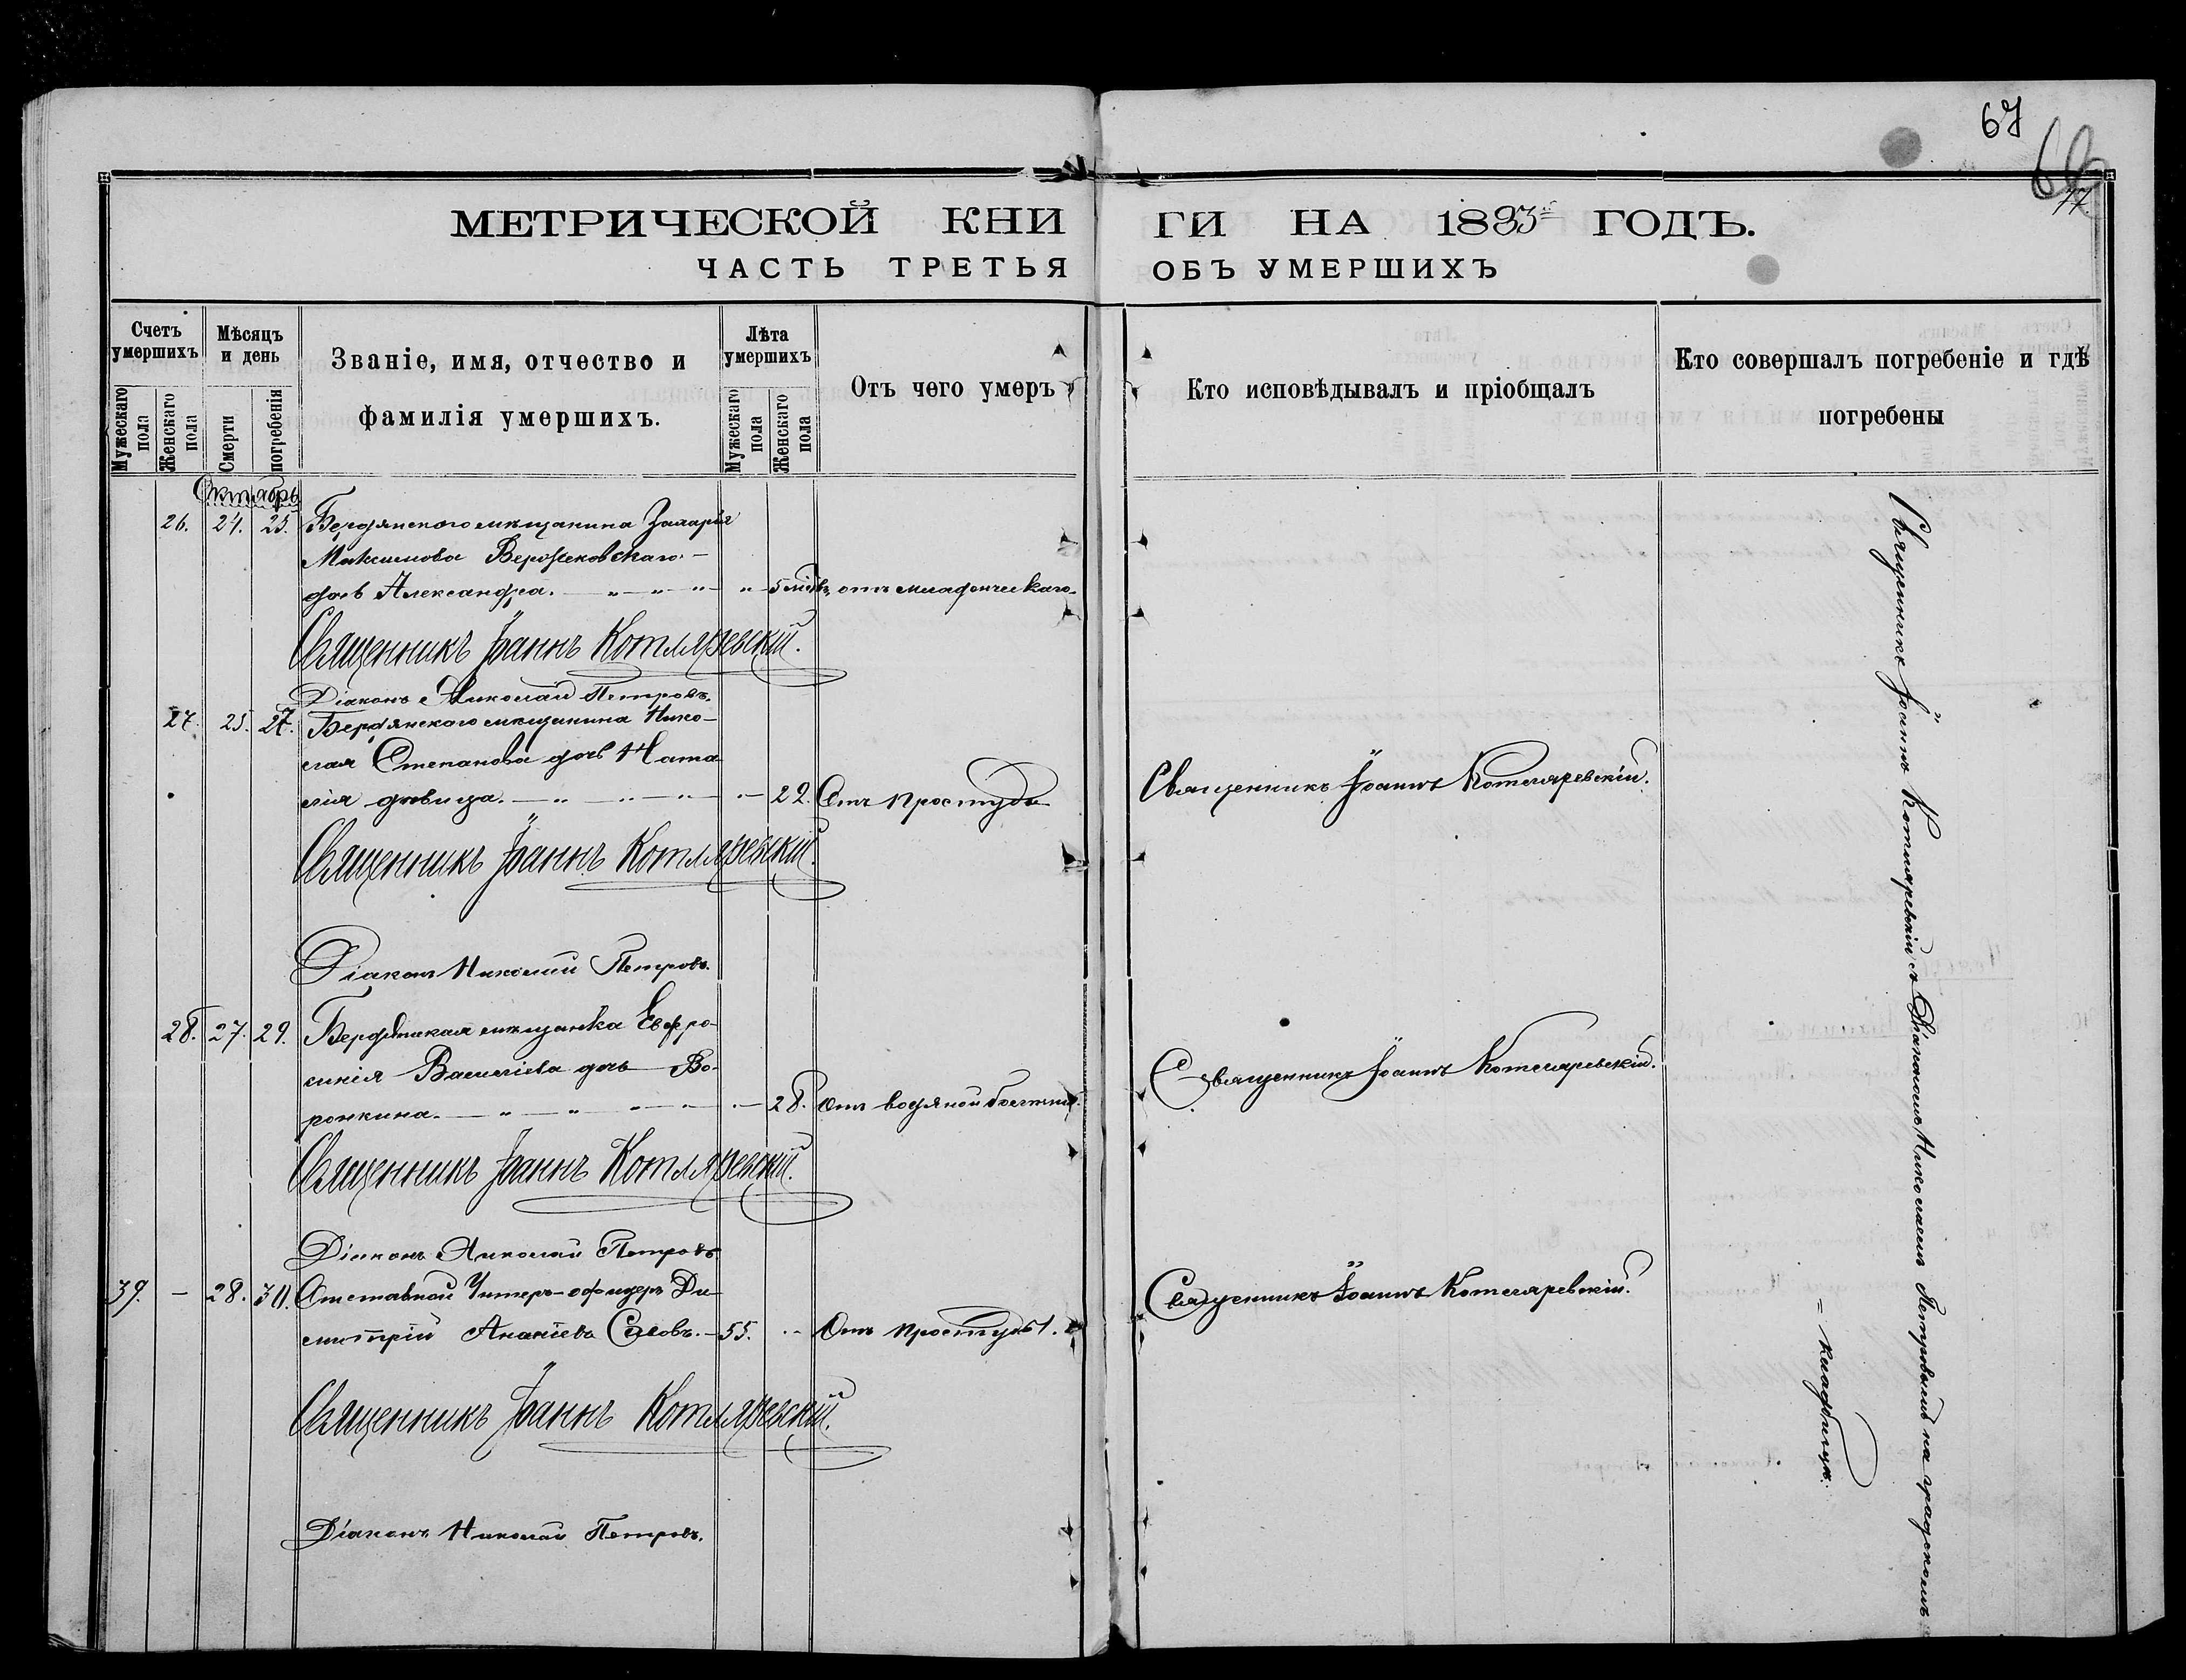 67
66
77.
МЕТРИЧЕСКОЙ КНИ ГИ НА 1893й ГОДЪ.
ЧАСТЬ ТРЕТЬЯ ОБЪ УМЕРШИХЪ
Счетъ умершихъ
Мужескаго пола
Женскаго пола
Мѣсяцъ и день
Смерти
погребенія
Званіе, имя, отчество и
фамилія умершихъ.
Лѣта умершихъ
Мужескаго пола
Женскаго пола
Отъ чего умеръ
Кто исповѣдывалъ и пріобщалъ
Кто совершалъ погребеніе и гдѣ
погребены
Октябрь
26. 24. 25. Бердянского мѣщанина Захарія
Максимова
дочь Александра. — „ — „ — „ — „ — 5 мѣс. отъ младенческаго.
Священникъ Іоаннъ Котляревскій.
Діаконъ Николай Петровъ.
27. 25. 27. Бердянского мѣщанина Нико-
лая Степанова дочь Ната
лія дѣвица. — „ — „ — „ — 22. Отъ простуды
Священникъ Іоаннъ Котляревскій.
Священникъ Іоаннъ Котляревскій.
Діаконъ Николай Петровъ.
28. 27. 29. Бердянская мѣщанка Евфро-
синія Василіева дочь Во-
ронкина. — „ — „ — „ — 28. Отъ водяной болѣзни.
Священникъ Іоаннъ Котляревскій.
Священникъ Іоаннъ Котляревскій.
Діаконъ Николай Петровъ
39. — 28. 30. Отставной Унтеръ-офицеръ Ди-
митрій Ананіевъ — 55. „ — Отъ простуды.
Священникъ Іоаннъ Котляревскій.
Священникъ Іоаннъ Котляревскій.
Діаконъ Николай Петровъ.
Священникъ Іоаннъ Котляревскій съ Діакономъ Николаемъ Петровымъ на градскомъ
= кладбищѣ.